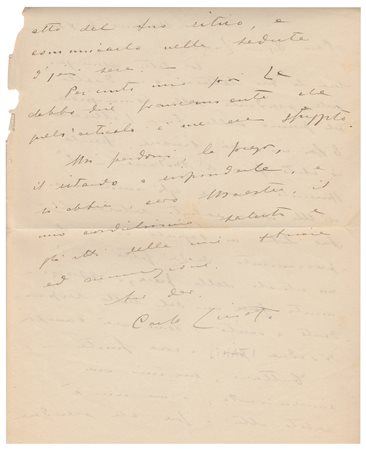 atto del suo ritiro, e
comunicarlo nella seduta
d'ieri sera. —
Per conto mio poi Le
debbo dire francamente che
quell'articolo a me era sfuggito.
Mi perdoni, la prego,
il ritardo a risponderle, e
si abbia, caro Maestro, il
mio cordialissimo saluto e
gli atti della mia stima
ed ammirazione.
Suo dev.
Carlo